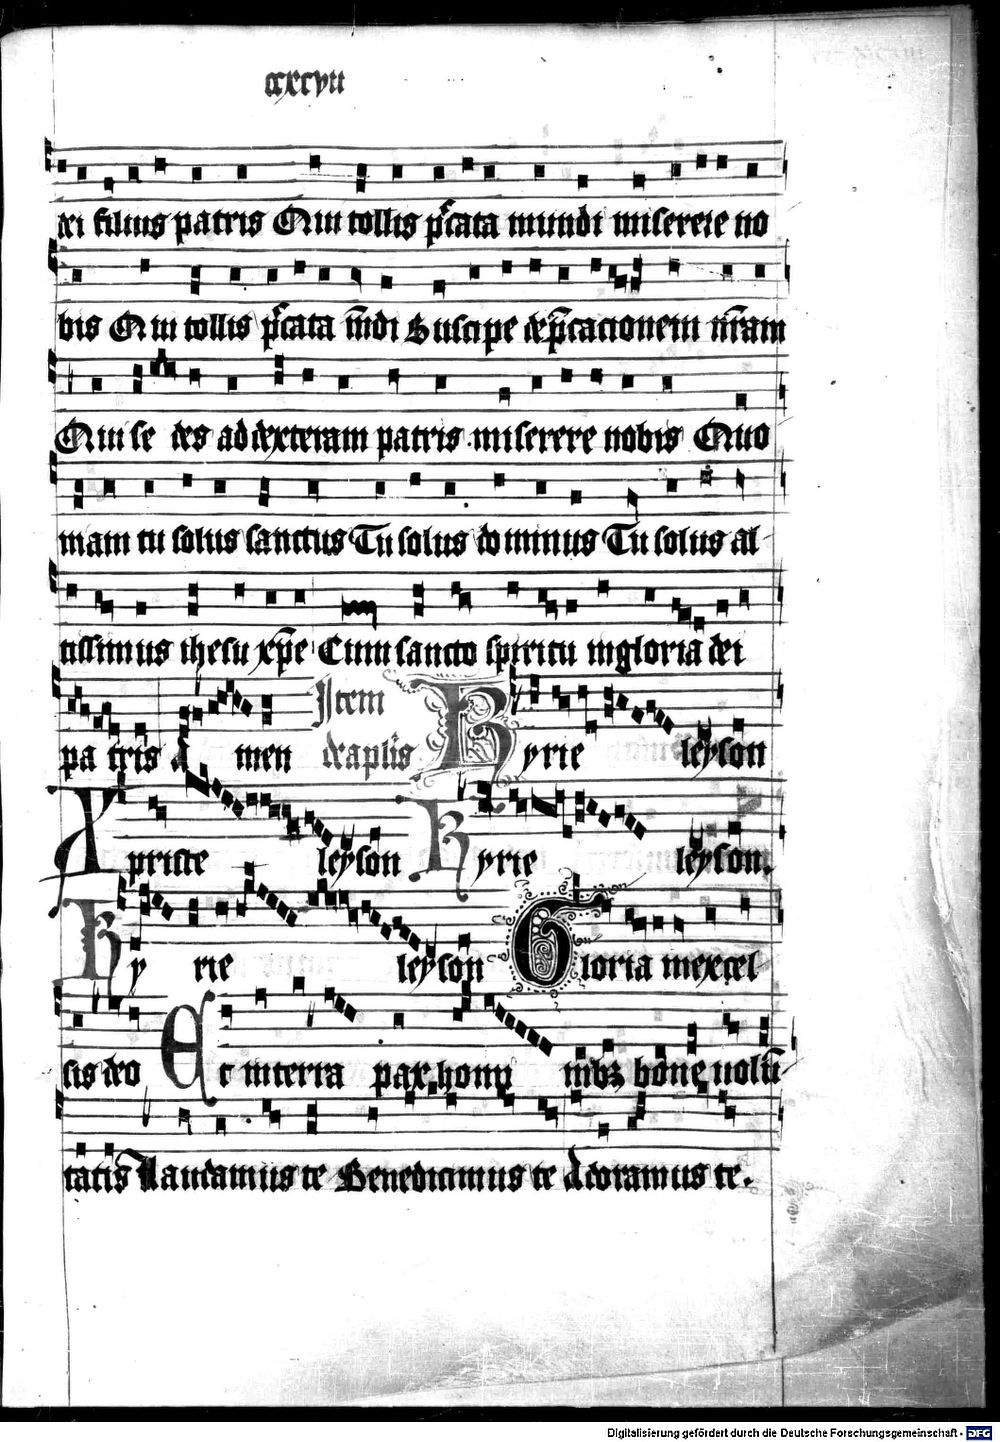 ccxcvii
dei filius patris Qui tollis p̄cata mundi miserere no
bis Qui tollis p̄cata m̄di Suscipe dep̄cacionem nr̄am
Qui se des ad dexteram patris miserere nobis Quo
niam tu solus sanctus Tu solus dominus Tu solus al
tissimus ihesu xp̄e Cum sancto spiritu in gloria dei
pa tris A men Item de apl̄is Kyrie leyson
Xpriste leyson Kyrie leyson.
Ky rie leyson Gloria in excel
sis deo Et in terra pax homi nibꝫ bone uolū
tatis Laudamus te Benedicimus te Adoramus te.
Digitalisierung gefördert durch die Deutsche Forschungsgemeinschaft - DFG